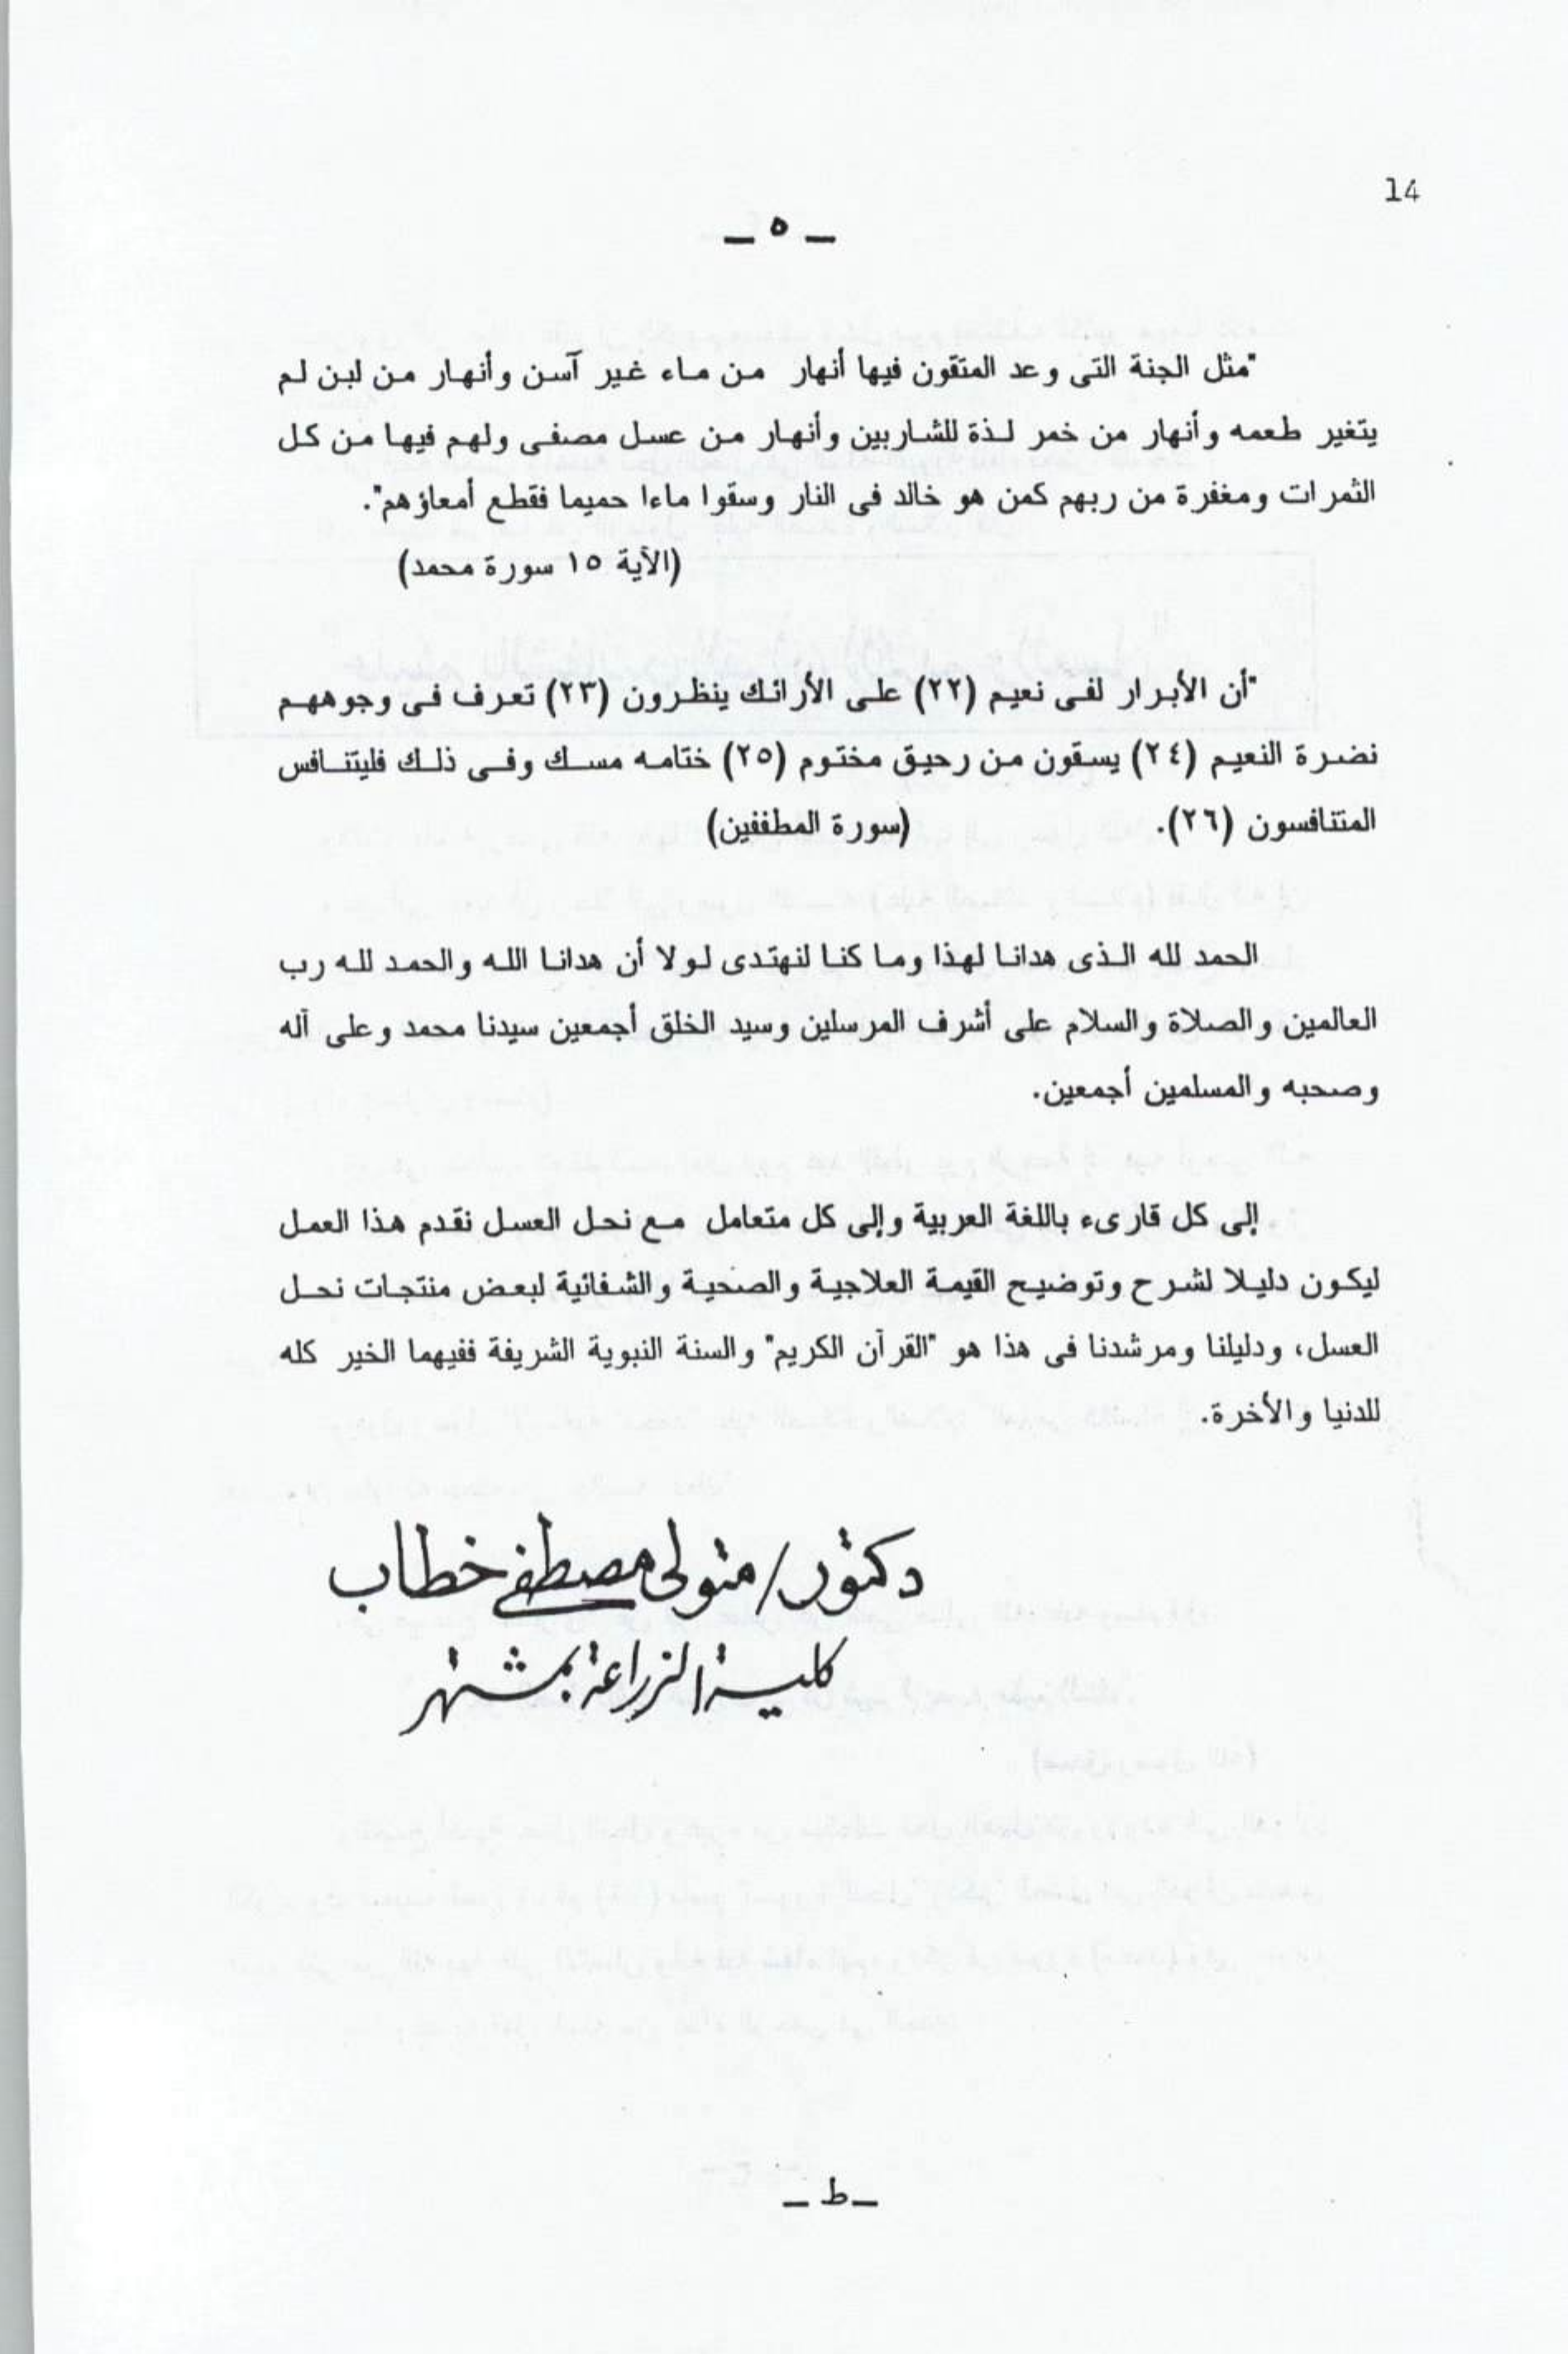 14
ـ ٥ ـ
"مثل الجنة التى وعد المتقون فيها أنهار من ماء غير آسن وأنهار من لبن لم
يتغير طعمه وأنهار من خمر لذة للشاربين وأنهار من عسل مصفى ولهم فيها من كل
الثمرات ومغفرة من ربهم كمن هو خالد فى النار وسقوا ماءا حميما فقطع أمعاؤهم".
(الآية ١٥ سورة محمد)
"أن الأبرار لفى نعيم (٢٢) على الأرائك ينظرون (٢٣) تعرف فى وجوههم
نضرة النعيم (٢٤) يسقون من رحيق مختوم (٢٥) ختامه مسك وفى ذلك فليتنافس
المتنافسون (٢٦). (سورة المطففين)
الحمد لله الذى هدانا لهذا وما كنا لنهتدى لولا أن هدانا الله والحمد لله رب
العالمين والصلاة والسلام على أشرف المرسلين وسيد الخلق أجمعين سيدنا محمد وعلى آله
وصحبه والمسلمين أجمعين.
إلى كل قارىء باللغة العربية وإلى كل متعامل مع نحل العسل نقدم هذا العمل
ليكون دليلا لشرح وتوضيح القيمة العلاجية والصحية والشفائية لبعض منتجات نحل
العسل، ودليلنا ومرشدنا فى هذا هو "القرآن الكريم" والسنة النبوية الشريفة ففيهما الخير كله
للدنيا والأخرة.
دكتور/ متولى مصطفى خطاب
كلية الزراعة بمشتهر
ـ ط ـ